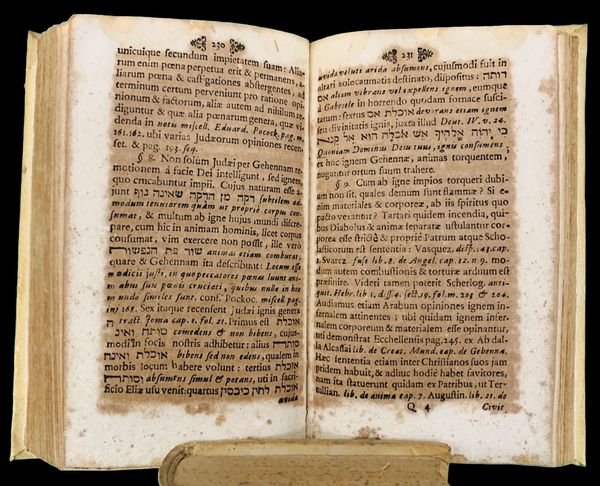 230
unicuique secundum impietatem suam: Alia-
rum enim pœna perpetua erit & permanens, a-
liarum pœna & castigationes abstergentes, ad
terminum certum perveniunt pro ratione opi-
nionum & factorum, aliæ autem ad nihilum re-
diguntur & quæ alia pœnarum genera, quæ vi-
denda in notu miscell. Eduard. Pocock. pag. m.
161. 162. ubi varias Judæorum opiniones recen-
set. & pag. 193. seq.
§ 8. Non solùm Judæi per Gehennam re-
motionem à facie Dei intelligunt, sed ignem,
quo crucabuntur impii. Cujus naturam esse a-
junt דקה מן הדקה שאונה גוף subtilem ad-
modum tenuiorem quam ut propriè corpus con-
sumat, & multum ab igne hujus mundi discre-
pare, cum hic in animam hominis, licet corpus
consumat, vim exercere non possit, ille verò
שורפת הנפשות animas etiam comburat;
quare & Gehennam ita describunt: Locum esse
in quo peccatores pœnas luunt ani-
mabus suis pœnis cruciati, quibus nullæ in hoc
mundo similes sunt. conf. Pockoc. miscell. pag.
inj 168. Sex itaque recensent Judæi ignis genera
tract. Joma cap. 1. fol. 21. Primus est אוכלת
ואינה סותה comedens & non bibens, cujus-
modi in focis nostris adhibetur: alius סותה
ואינה אוכלת bibens sed non edens, qualem in
morbis locum habere volunt: tertius אוכלת
וסותה absumens simul & potans, uti in sacri-
ficio Eliæ usu venit: quartus אוכלת לחין כיבשין
avida
231
avida veluti arida absumens, cujusmodi fuit in
altari holocaumatis destinato, dispositus: רוחה
אש aliam vibrans vel expellens ignem, eumque
à Gabriele in horrendo quodam fornace susci-
tatum: sextus אוכלת אש devorans etiam ignem
seu divinitatis ignis, juxta illud Deut. IV. v. 24.
כי יהוה אלהיך אש אכלה הוא אל קנא
Quoniam Dominus Deus tuus, ignis consumens;
ex hoc ignem Gehennæ, animas torquentem,
nugantur ortum suum trahere.
§ 9. Cum ab igne impios torqueri dubi-
um non sit, quales denum sunt flammæ? Si e-
nim materiales & corporeæ, ab iis spiritus quo
pacto vexantur? Tartari quidem incendia, qui-
bus Diabolus & animæ separatæ ustulantur cor-
porea esse strictè & propriè Patrum atque Scho-
lasticorum est sententia: Vasquez. disp. 243. cap.
1. Svarez. fuse lib. 8. de Angel. cap. 12. n. 9. mo-
dum autem combustionis & torturæ arduum est
præfinire. Videri tamen poterit Scherlog. anti-
quit. Hebr. lib 1, diss. 4. sect. 19. fol. m. 203 & 204.
Audiamus etiam Arabum opiniones ignem in-
fernalem attinentes; ubi quidam ignem infer-
nalem corporeum & materialem esse opinantur,
uti demonstrat Ecchellensis pag. 245. ex Ab dal-
la Alcassai lib. de Creat. Mund. cap. de Gehenna.
Hæc sententia etiam inter Christianos suos jam
pridem habuit, & adhuc hodiè habet favitores,
nam ita statuerunt quidam ex Patribus, ut Ter-
tullian. lib. de anima cap. 7. Augustin. lib. 21. de
Q 4 Civit